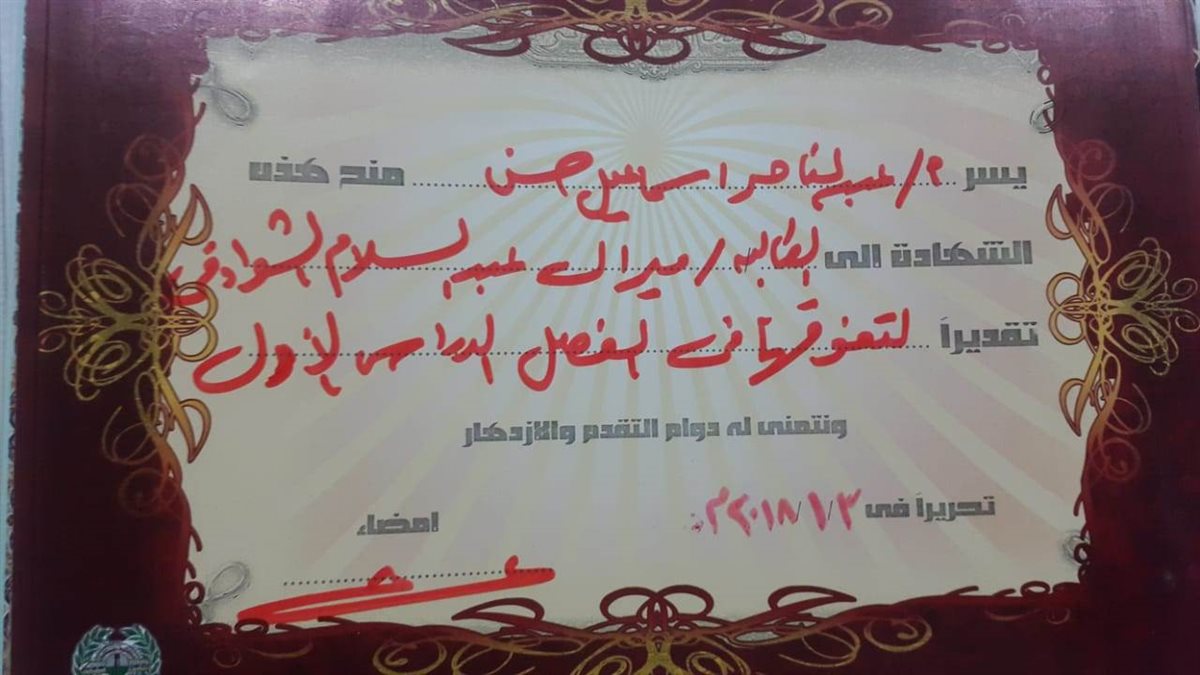 يسر م/ عبد الناصر اسماعيل حسن منح هذه
الشهادة الى الطالبه / ميرال عبد السلام الشوادفى
تقديراً لتفوقها فى الفصل الدراسى الأول
ونتمنى له دوام التقدم والازدهار
تحريراً فى ٣/١/٢٠١٨م
امضاء